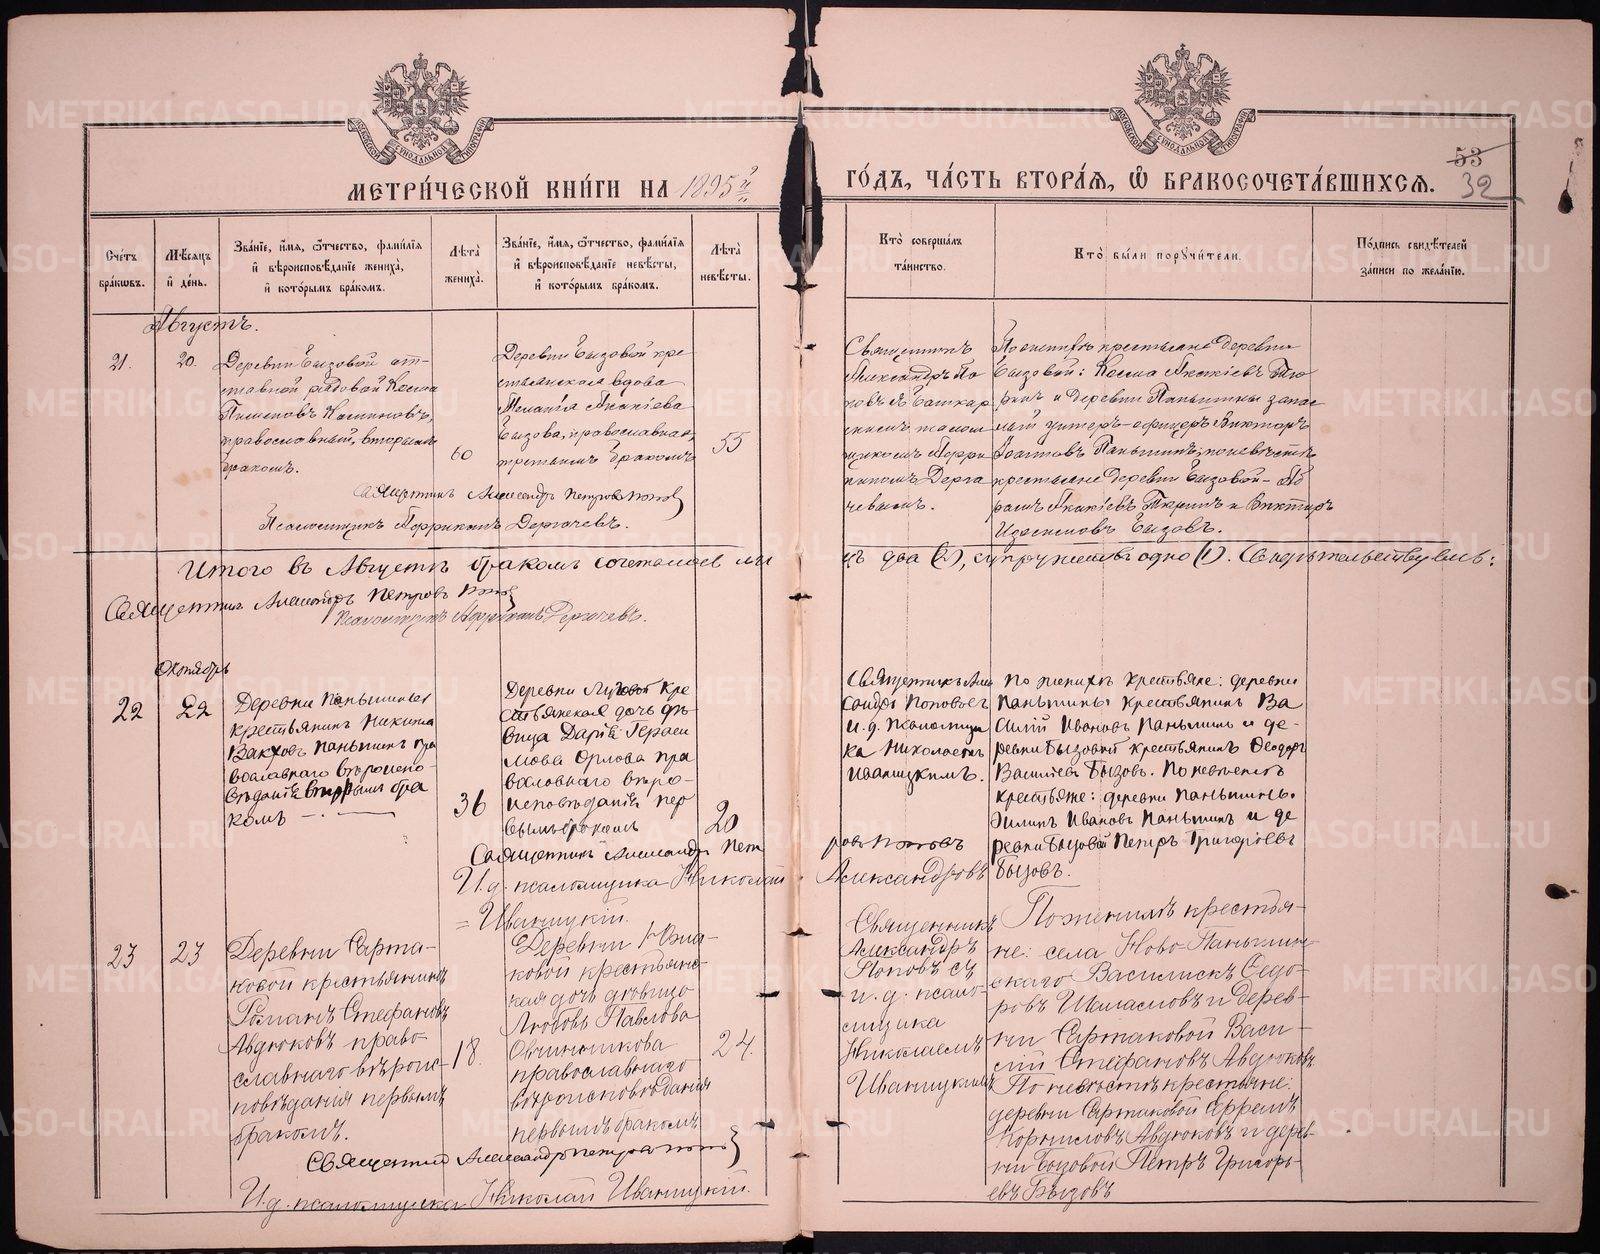 МЕТРИ́ЧЕСКОЙ КНИ́ГИ НА 1895й
ГО́ДЪ, ЧА́СТЬ ВТОРА́Я, Ѽ БРАКОСОЧЕТА́ВШИХСЯ.
53
32
Сче́тъ бра́кѡвъ.
Мѣ́сяцъ и҆ де́нь.
Зва́нїе, и҆́мя, ѻ҆́тчество, фамилїя и҆ вѣроисповѣ́данїе жениха̀, и҆ кото́рымъ бра́комъ.
Лѣта̀ жениха̀.
Зва́нїе, и҆́мя, ѻ҆́тчество, фами́лїя и҆ вѣроисповѣ́данїе невѣ́сты, и҆ кото́рымъ бра́комъ.
Лѣта̀ невѣ́сты.
Кто̀ соверша́лъ та́инство.
Кто̀ бы́ли порꙋчи́тели.
По́дпись свидѣ́телей за́писи по жела́нїю.
Августъ.
21.
20.
Деревни Бызовой от-
ставной рядовой Косма
православный, вторымъ
бракомъ.
60
Деревни Бызовой кре
стьянская вдова
Акакіева
Бызова, православная,
третьимъ бракомъ
55
Священникъ
Александръ По
повъ
Дерга
чевымъ.
По женихѣ крестьяне деревни
Бызовой: Косма Акакіевъ Тю
ринъ и деревни Паньшины запас
ный унтеръ-офицеръ Викторъ
Паньшинъ; по невѣстѣ
крестьяне деревни Бызовой-
Акакіевъ Тюринъ и Викторъ
Бызовъ.
Священникъ Александръ Петровъ Поповъ
Псаломщикъ Дергачевъ.
Итого въ Августѣ бракомъ сочеталось ли
цъ два (2), супружествъ одно (1). Свидѣтельствуемъ:
Священникъ Александръ Петровъ Поповъ
Псаломщикъ Дергачевъ.
Октябрь
22
22
Деревни Паньшины
крестьянинъ Никита
Паньшинъ пра
вославнаго вѣроиспо-
вѣданія вторымъ бра
комъ
36
Деревни Луговой кре
стьянская дочь дѣ
вица Дарія Гераси
мова Орлова пра
вославнаго вѣро-
исповѣданія пер
вымъ бракомъ
20
Священникъ Алек
сандръ Поповъ съ
и.д. псаломщи
ка Николаемъ
Иваницкимъ.
По женихѣ крестьяне: деревни
Паньшины крестьянинъ Ва
силій Ивановъ Паньшинъ и де-
ревни Бызовой крестьянинъ Ѳеодоръ
Васильевъ Бызовъ. По невѣстѣ
крестьяне: деревни Паньшины
Ивановъ Паньшинъ и де
ревни Бызовой Петръ Григорьевъ
Бызовъ.
Священникъ Александръ Пет
ровъ Поповъ
И.д. псаломщика Николай
Александровъ
= Иваницкій.
23
23
Деревни Сарта-
ковой крестьянинъ
Романъ Стефановъ
Авдюковъ право
славнаго вѣроис-
повѣданія первымъ
бракомъ.
18.
Деревни
ковой крестьянс-
кая дочь дѣвица
Любовь Павлова
Овчинникова
православнаго
вѣроисповѣданія
первымъ бракомъ
24.
Священникъ
Александръ
Поповъ съ
и. д. псало-
мщика
Николаемъ
Иваницкимъ
По женихѣ крестья-
не: села Ново-Паньшин-
скаго Василискъ Ѳедо-
ровъ и дерев-
ни Сартаковой Васи-
лій Стефановъ Авдюковъ
По невѣстѣ крестьяне:
деревни Сартаковой Ефремъ
Корниловъ Авдюковъ и дерев-
ни Бызовой Петръ Григорь-
евъ Бызовъ
Священникъ Александръ Петровъ Поповъ
И.д. псаломщика Николай Иваницкій.
METRIKI.GASO-URAL.RU